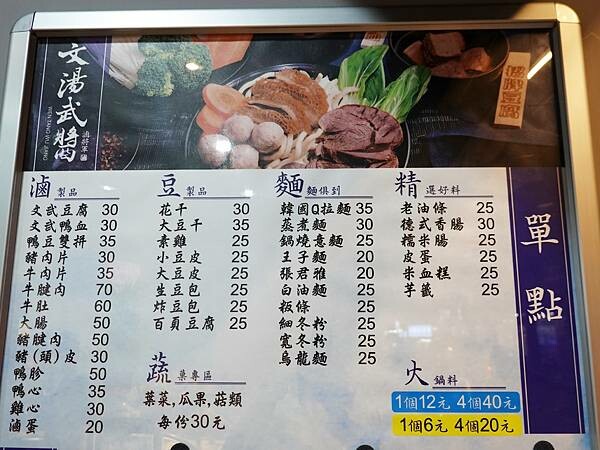 文湯武醬
WEN TANG WU JIANG
單點
滷 製品
文武豆腐 30
文武鴨血 30
鴨豆雙拼 35
豬肉片 30
牛肉片 35
牛腱肉 70
牛肚 60
大腸 50
豬腱肉 50
豬(頭)皮 30
鴨胗 50
鴨心 35
雞心 30
滷蛋 20
豆 製品
花干 30
大豆干 35
素雞 25
小豆皮 25
大豆皮 25
生豆包 25
炸豆包 25
百頁豆腐 25
蔬 菜專區
葉菜,瓜果,菇類
每份30元
麵 麵俱到
韓國Q拉麵 35
蒸煮麵 30
鍋燒意麵 25
王子麵 20
張君雅 20
白油麵 25
粄條 25
細冬粉 25
寬冬粉 25
烏龍麵 25
精 選好料
老油條 25
德式香腸 30
糯米腸 25
皮蛋 25
米血糕 25
芋籤 25
火 鍋料
1個12元 4個40元
1個6元 4個20元